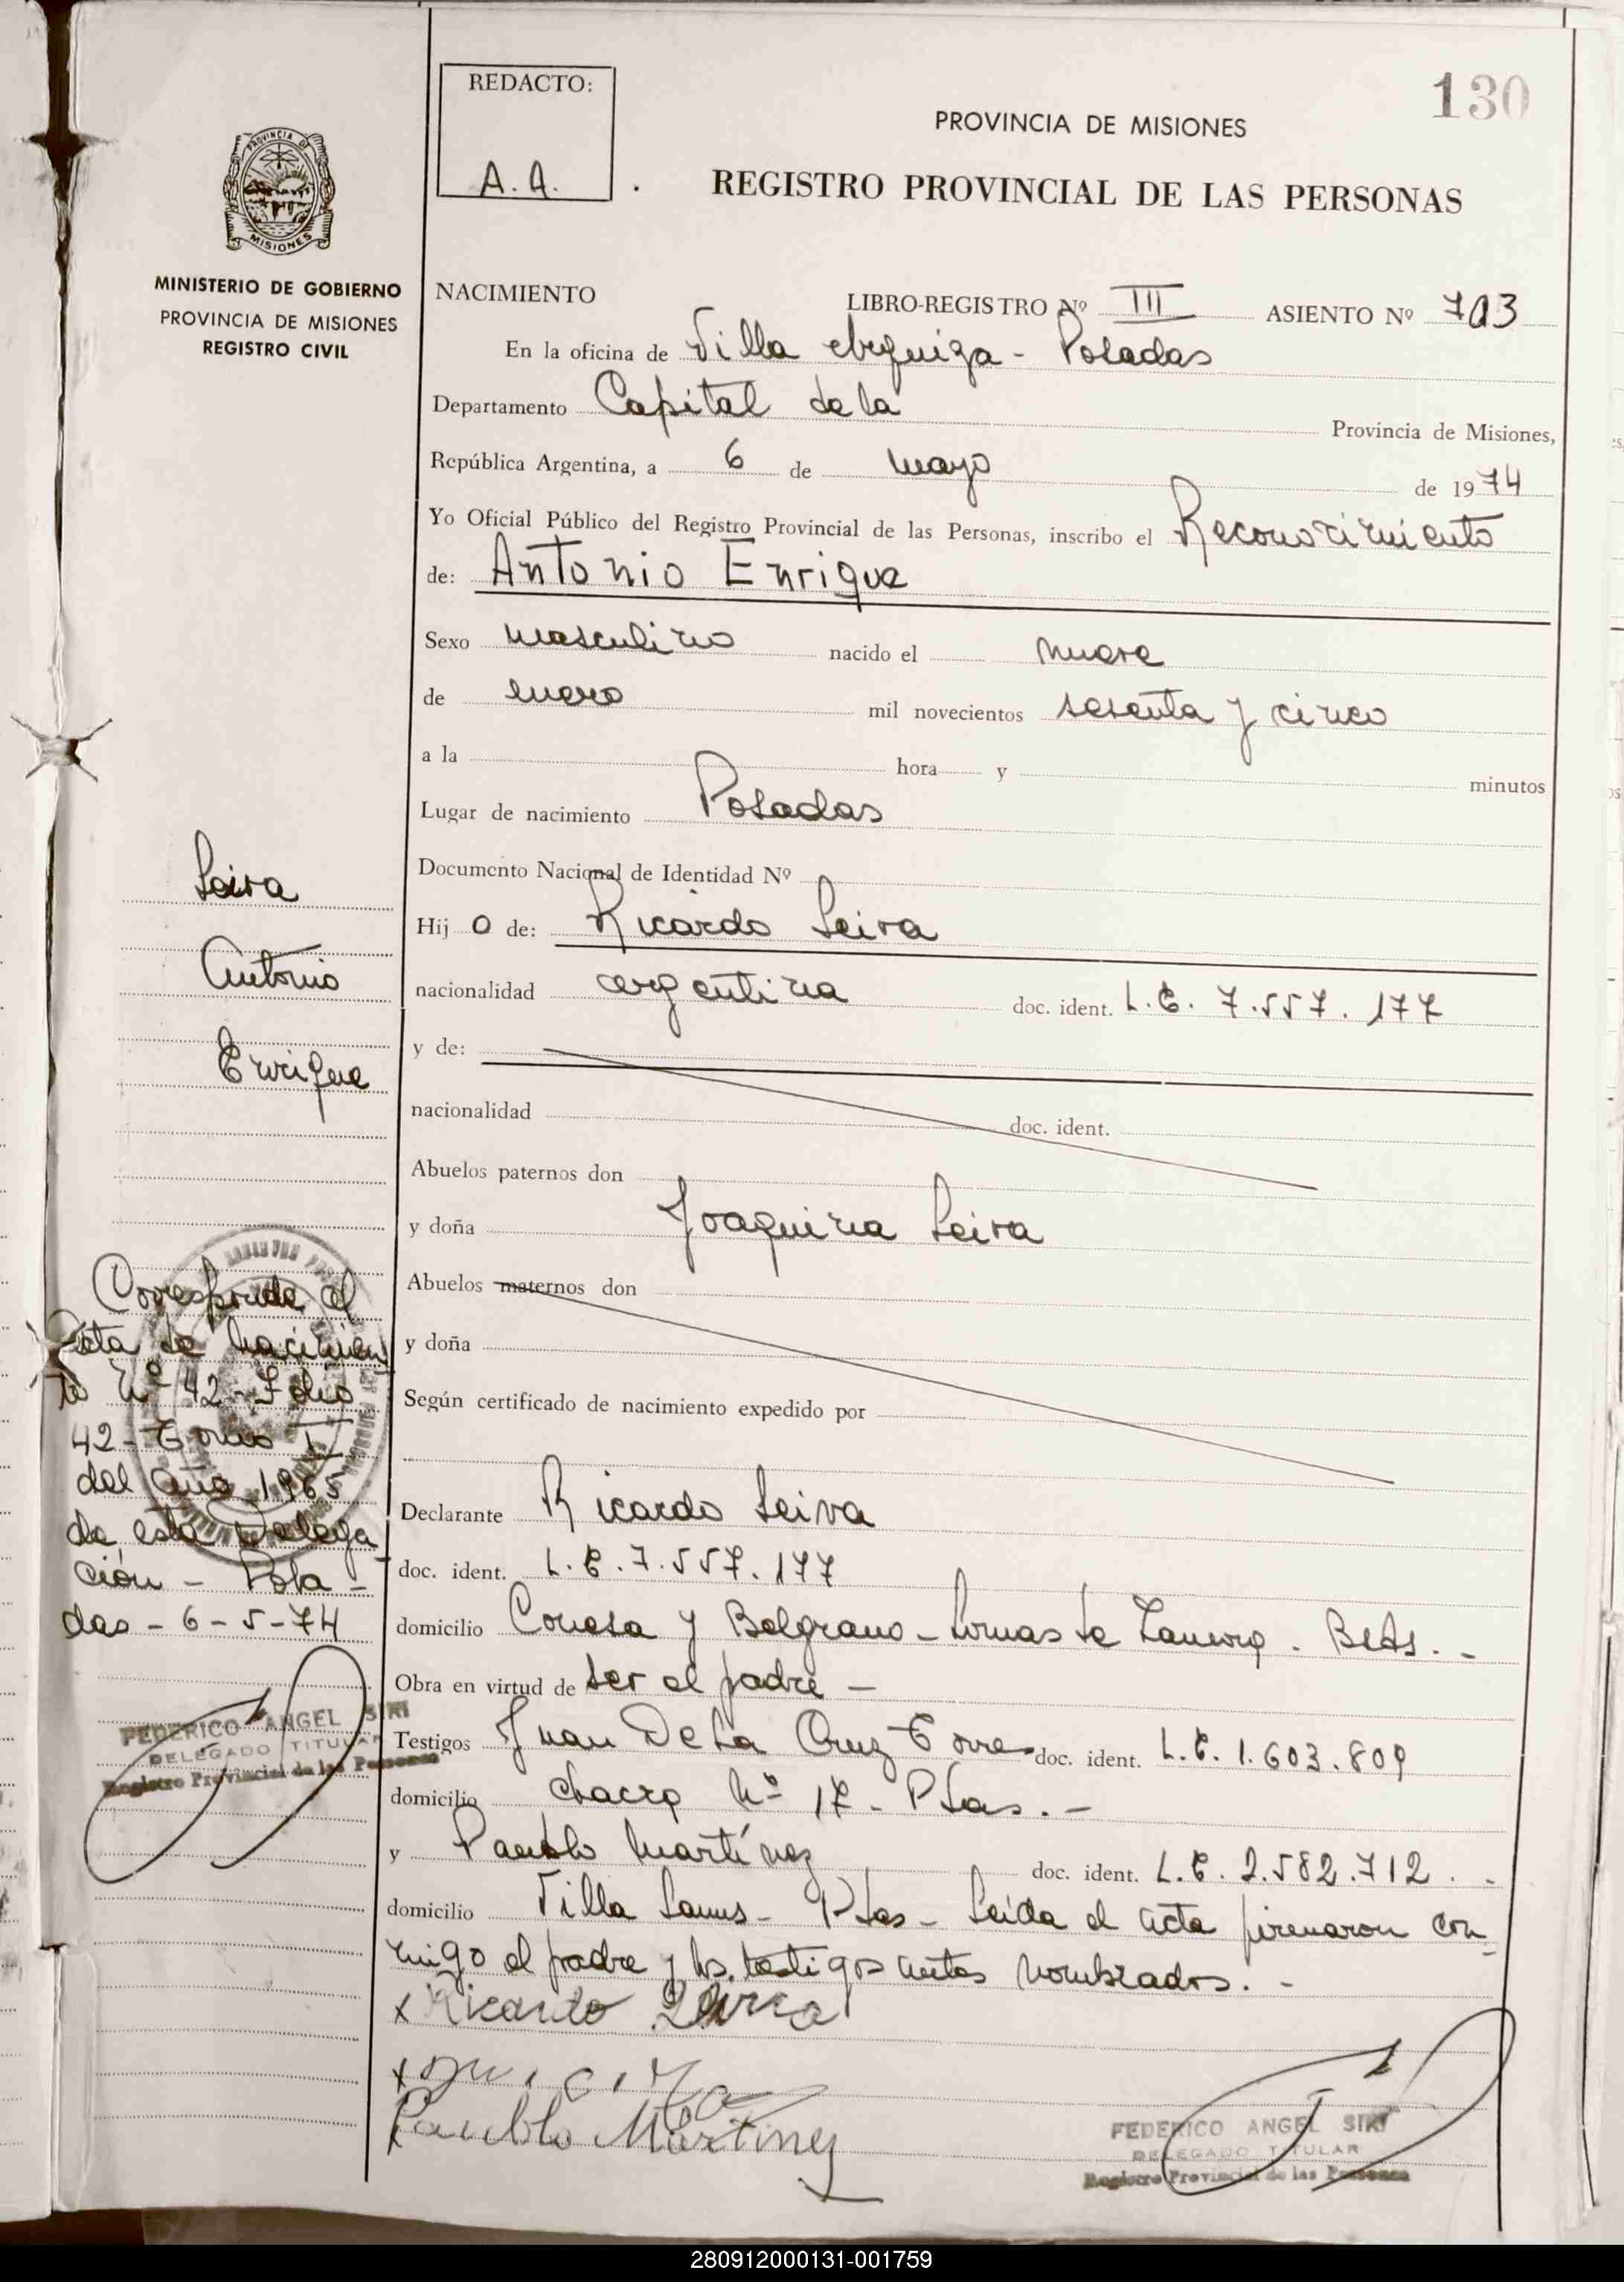 130
REDACTO:
A.A.
PROVINCIA DE MISIONES
REGISTRO PROVINCIAL DE LAS PERSONAS
PROVINCIA DE
MISIONES
MINISTERIO DE GOBIERNO
PROVINCIA DE MISIONES
REGISTRO CIVIL
NACIMIENTO LIBRO-REGISTRO Nº III ASIENTO Nº 703
En la oficina de Villa Urquiza - Posadas
Departamento Capital de la Provincia de Misiones,
República Argentina, a 6 de mayo de 1974
Yo Oficial Público del Registro Provincial de las Personas, inscribo el Reconocimiento
de: Antonio Enrique
Sexo masculino nacido el nueve
de enero mil novecientos sesenta y cinco
a la hora y minutos
Lugar de nacimiento Posadas
Documento Nacional de Identidad Nº
Hij o de: Ricardo Leiva
nacionalidad argentina doc. ident. L.E. 7.557.177
y de:
nacionalidad doc. ident.
Abuelos paternos don
y doña Joaquina Leiva
Abuelos maternos don
y doña
Según certificado de nacimiento expedido por
Declarante Ricardo Leiva
doc. ident. L.E. 7.557.177
domicilio Conesa y Belgrano - Lomas de Zamora. BsAs. -
Obra en virtud de ser el padre -
Testigos Juan De La Cruz Torres doc. ident. L.E. 1.603.809
domicilio chacra Nº 17 - Pdas. -
y Paublo Martínez doc. ident. L.E. 2.582.712. -
domicilio Villa Lanus - Pdas - Leída el acta firmaron con
migo el padre y los testigos antes nombrados. -
x Ricardo Leiva
x
Paublo Martinez
FEDERICO ANGEL SIRI
DELEGADO TITULAR
Registro Provincial de las Personas
Leiva
Antonio
Enrique
Corresponde al
Acta de Nacimien
to Nº 42 - Folio
42 - Tomo I
del Año 1965
de esta Delega
ción - Posa -
das - 6-5-74
FEDERICO ANGEL SIRI
DELEGADO TITULAR
Registro Provincial de las Personas
280912000131-001759